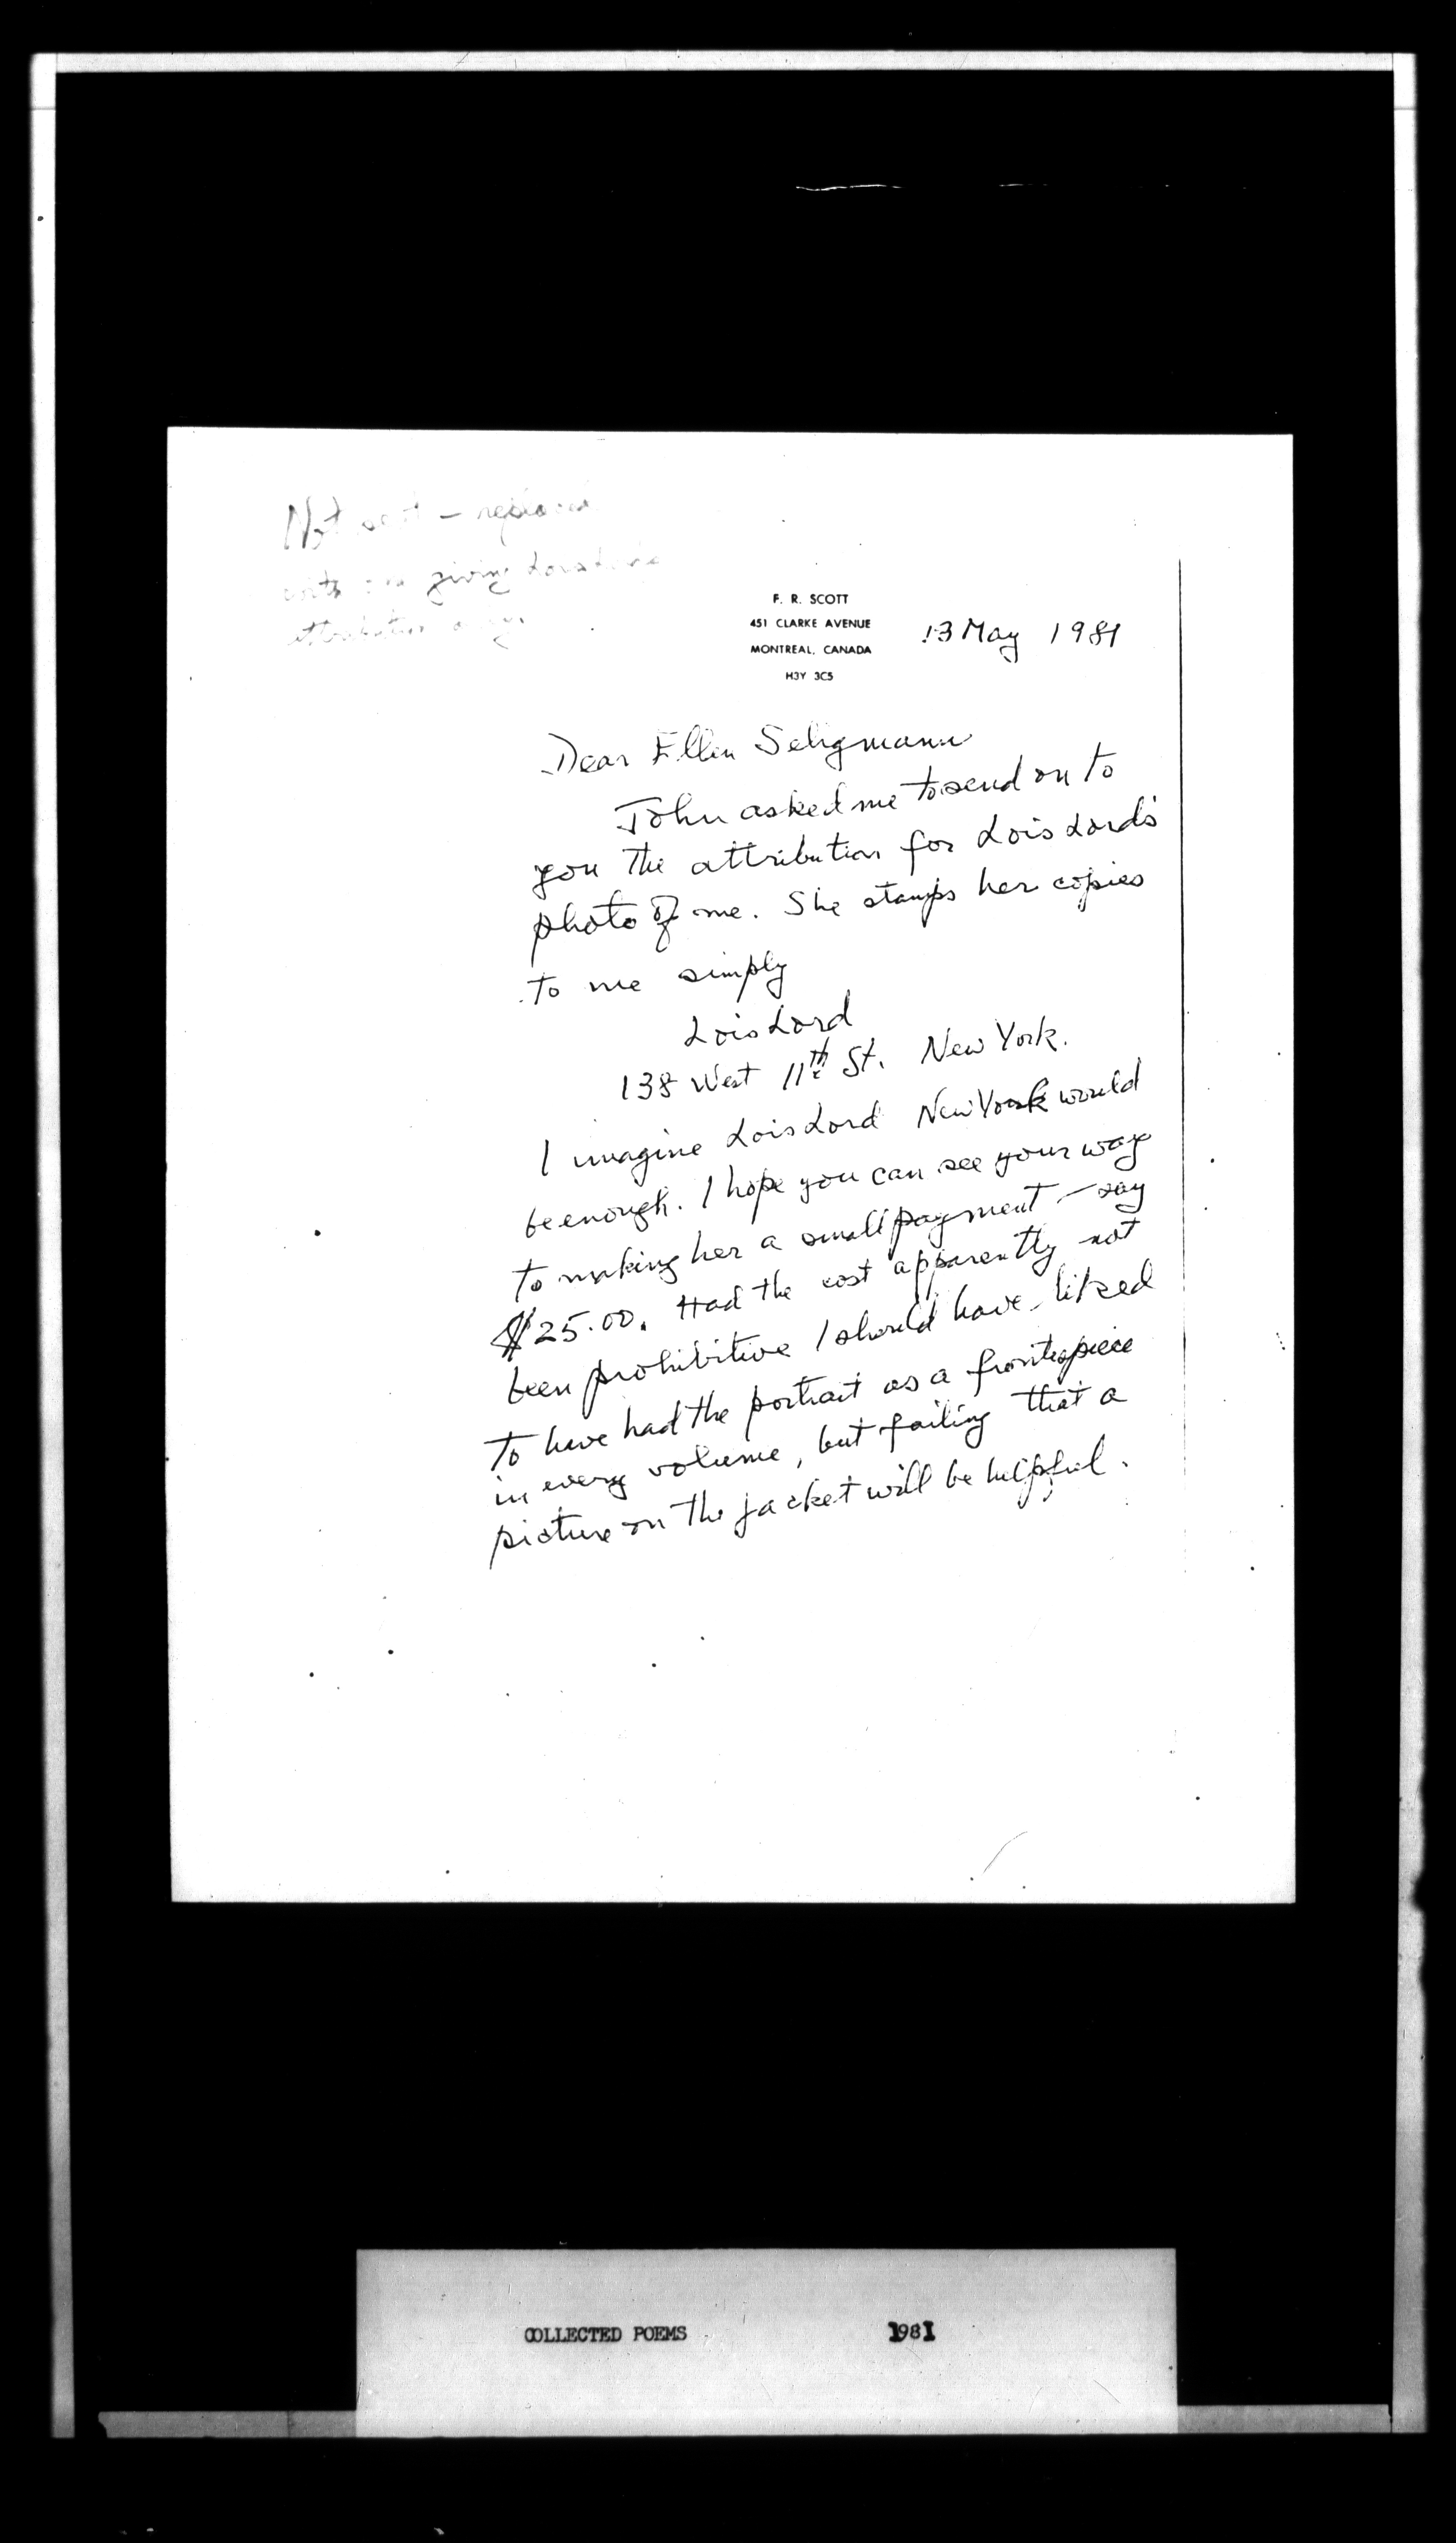 Not sent – replaced
with one giving Lois Lord's
attribution only.
F. R. SCOTT
451 CLARKE AVENUE
MONTREAL, CANADA
H3Y 3C5
13 May 1981
Dear Ellen Seligmann
John asked me to send on to
you the attribution for Lois Lord's
photo of me. She stamps her copies
to me simply
Lois Lord
138 West 11th St. New York.
I imagine Lois Lord New York would
be enough. I hope you can see your way
to making her a small payment – say
$25.00. Had the cost apparently not
been prohibitive I should have liked
to have had the portrait as a frontispiece
in every volume, but failing that a
picture on the jacket will be helpful.
COLLECTED POEMS 1981